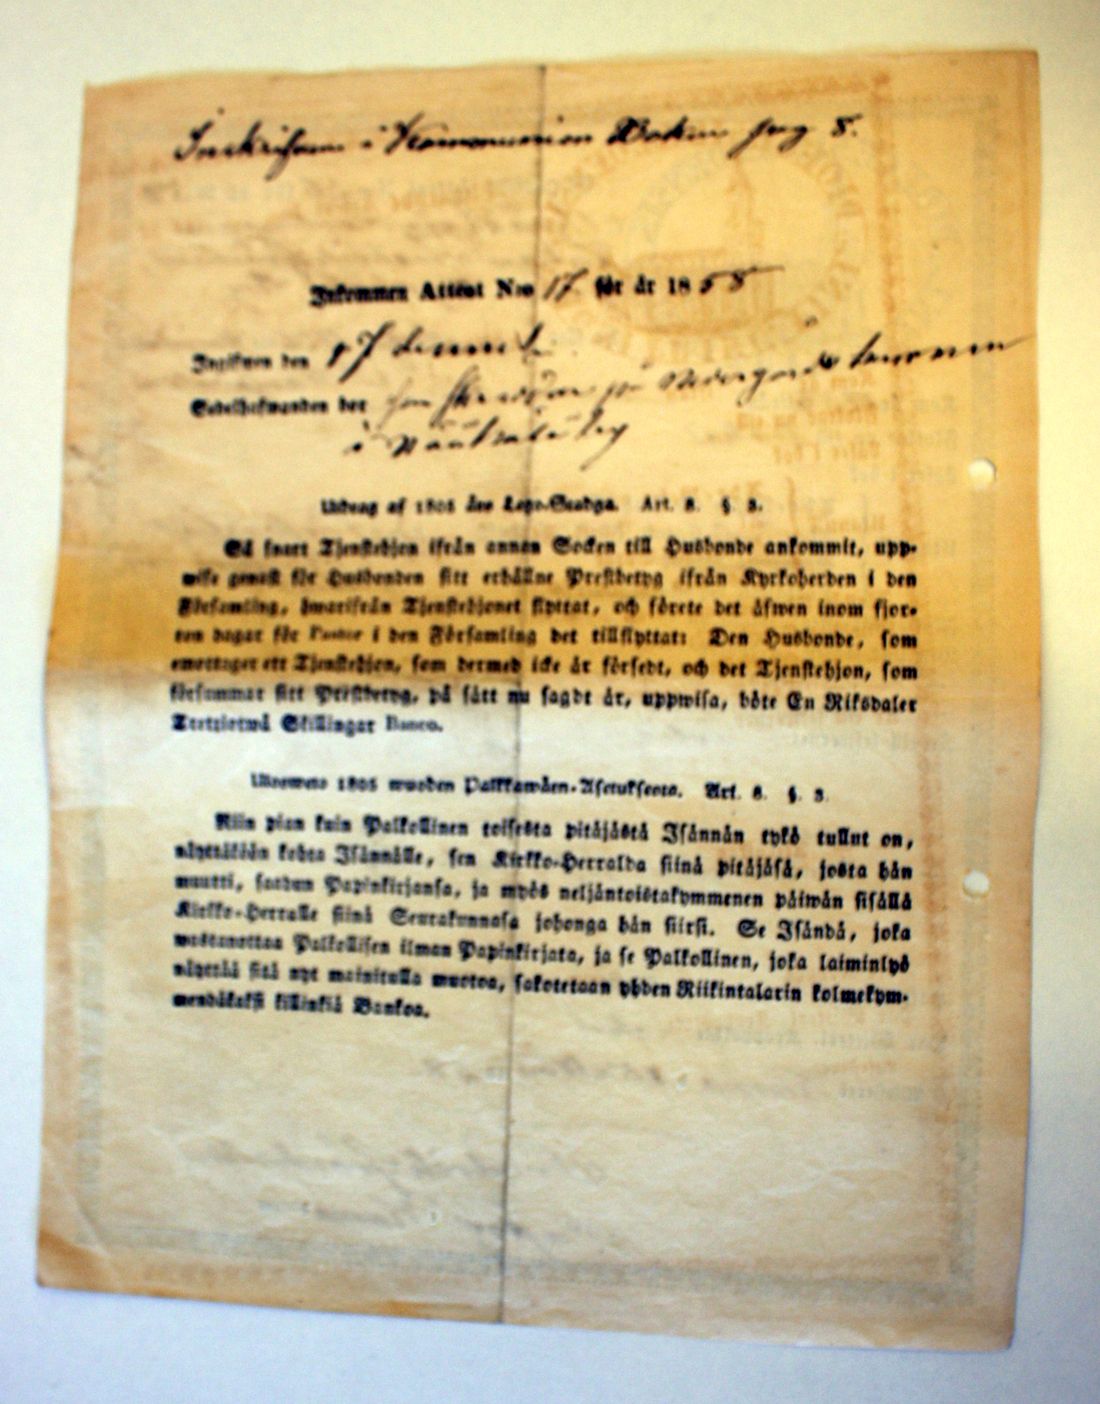 Inskrifven i Kommunion Boken pag 8.
Inkommen Attest N:o 17 för år 1858
Inskrifven den 17
Sedelhafwanden bor
i
Utdrag af 1805 års Lego-Stadga. Art. 8. §. 3.
Så snart Tjenstehjon ifrån annan Socken till Husbonde ankommit, upp-
wise genast för Husbonden sitt erhållne Prestbetyg ifrån Kyrkoherden i den
Församling, hwarifrån Tjenstehjonet flyttat, och förete det äfwen inom fjor-
ton dagar för Pastor i den Församling det tillflyttat: Den Husbonde, som
emottager ett Tjenstehjon, som dermed icke är försedt, och det Tjenstehjon, som
försummar sitt Prestbetyg, på sätt nu sagdt är, uppwisa, böte En Riksdaler
Trettiotwå Skillingar Banco.
Ulosweto 1805 wuoden Palkkawäen-Asetuksesta. Art. 8. §. 3.
Niin pian kuin Palkollinen toisesta pitäjästä Isännän tykö tullut on,
näyttäköön kohta Isännälle, sen Kirkko-Herralda siinä pitäjäsä, josta hän
muutti, saadun Papinkirjansa, ja myös neljäntoistakymmenen päiwän sisällä
Kirkko-Herralle siinä Seurakunnasa johonga hän siirsi. Se Isändä, joka
wastanottaa Palkollisen ilman Papinkirjata, ja se Palkollinen, joka laiminlyö
näyttää sitä nyt mainitulla muotoa, sakotetaan yhden Riikintalarin kolmekym-
mendäkaksi killinkiä Bankoa.